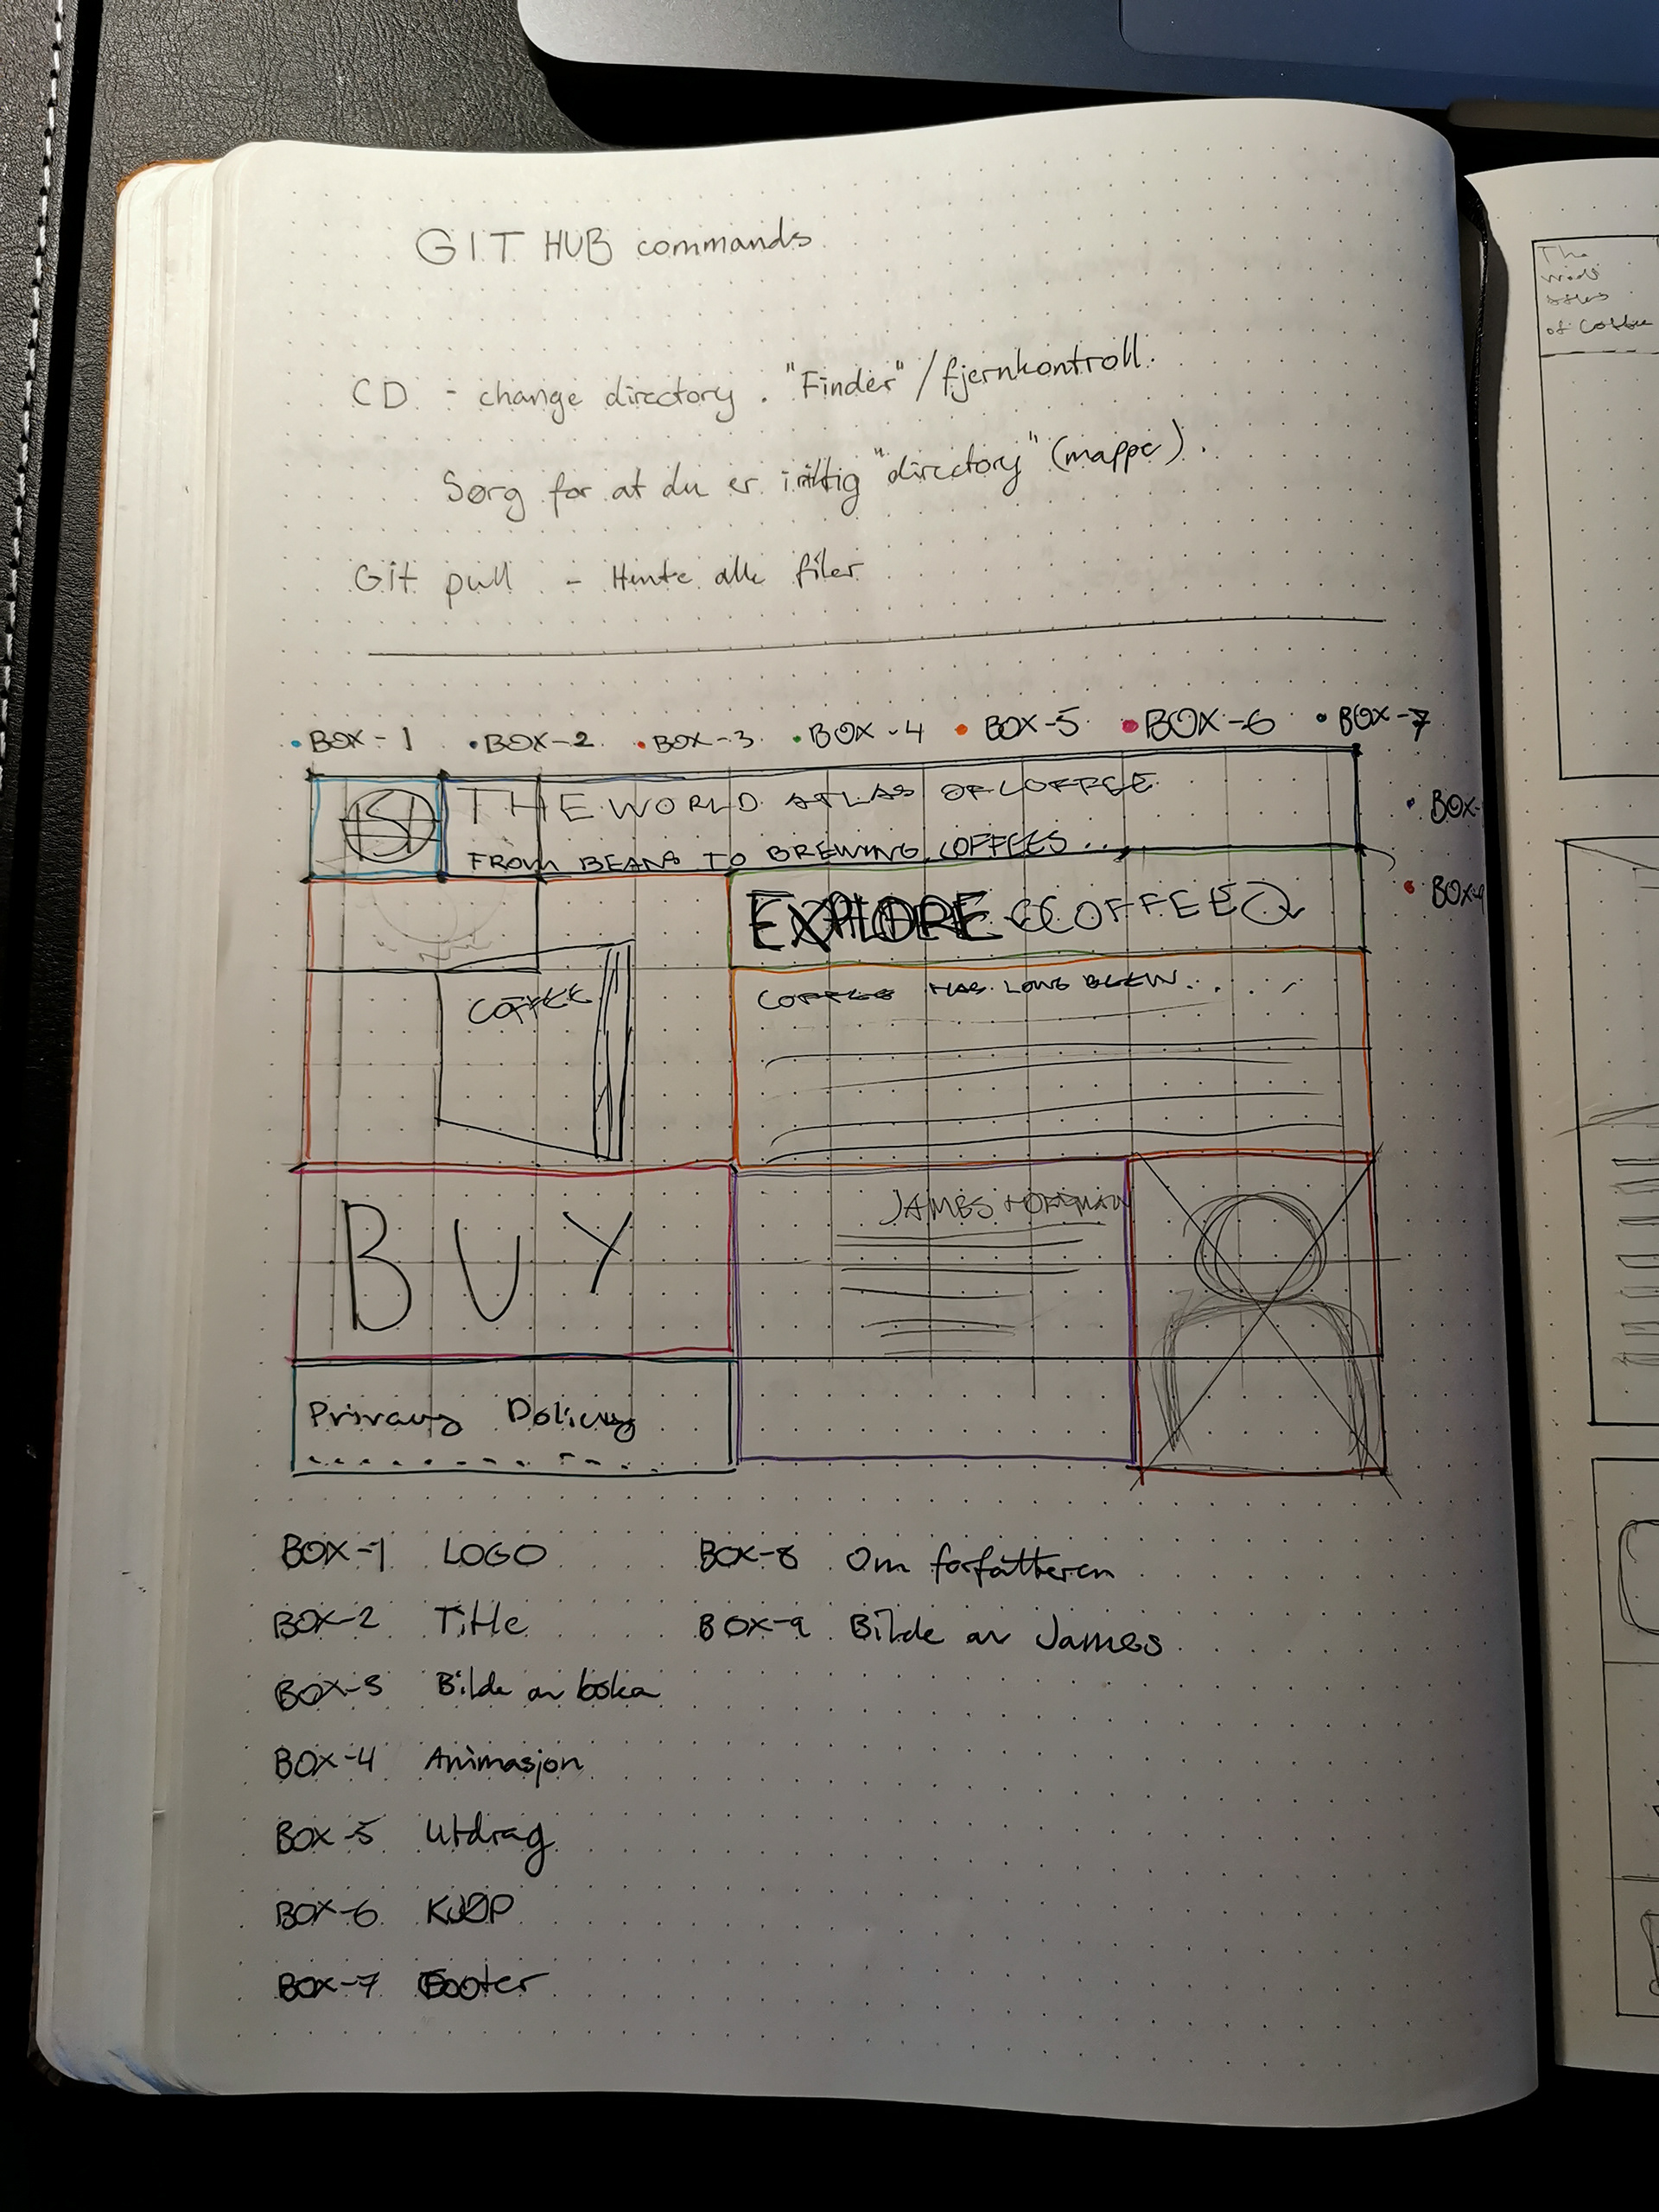 GIT HUB commands
CD - change directory. "Finder"/fjernkontroll.
Sørg for at du er i riktig "directory" (mappe).
Git pull - Hente alle filer
BOX-1 BOX-2 BOX-3 BOX-4 BOX-5 BOX-6 BOX-7
BOX-
BOX-
THE WORLD ATLAS OF COFFEE
FROM BEANS TO BREWING COFFEES...
EXPLORE COFFEE
COFFEE
COFFEE HAS LONG BEEN...
BUY
JAMES HOFFMAN
Privacy Policy
BOX-1 LOGO
BOX-2 Title
BOX-3 Bilde av boka
BOX-4 Animasjon
BOX-5 Utdrag
BOX-6 KJØP
BOX-7 Footer
BOX-8 Om forfatteren
BOX-9 Bilde av James
The
of Coffee